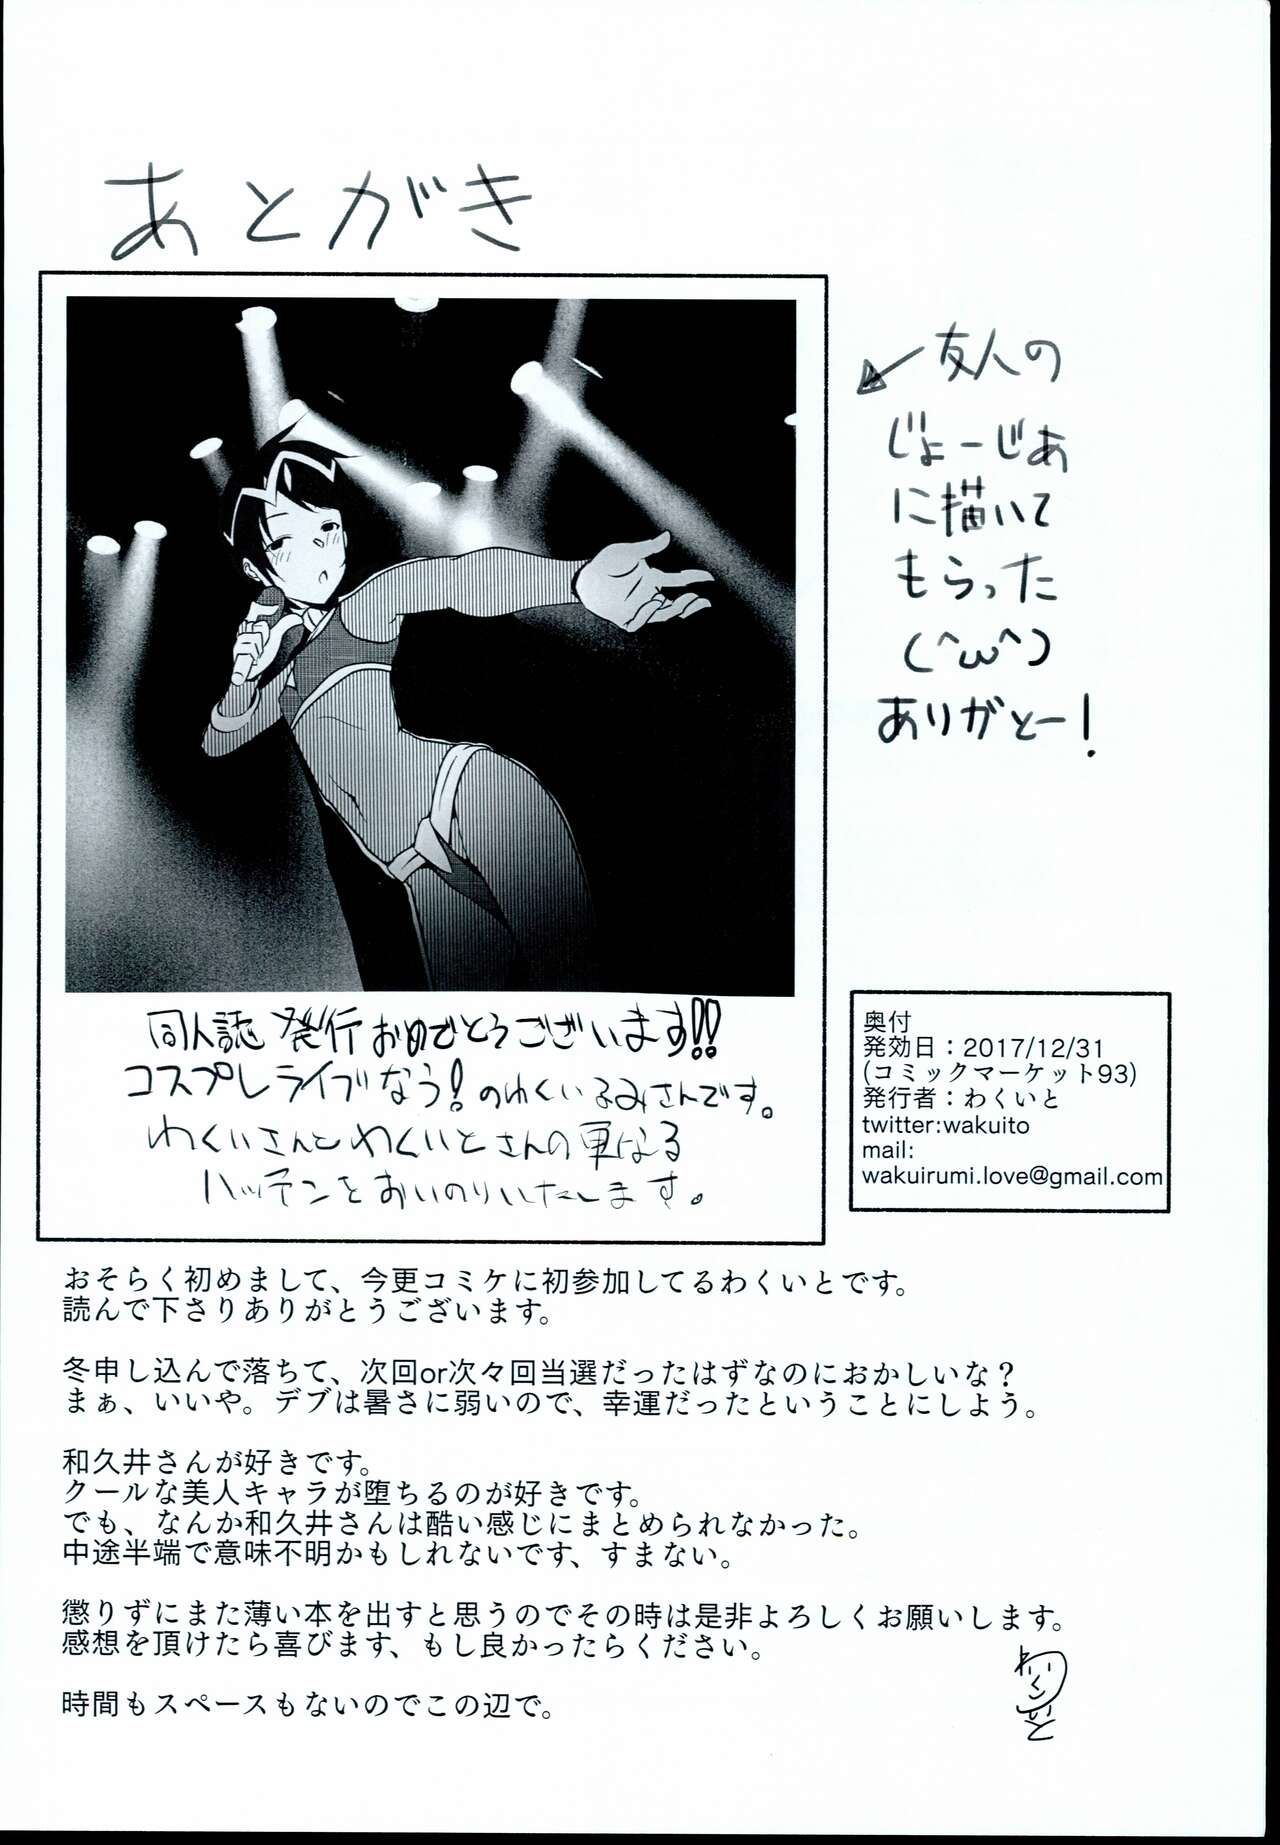 あとがき
友人の
じょーじあ
に描いて
もらった
(^ω^)
ありがとー!
同人誌 発行おめでとうございます!!
コスプレライブなう!のわくいるみさんです。
わくいさんとわくいとさんの更なる
ハッテンをおいのりいたします。
奥付
発効日：2017/12/31
(コミックマーケット93)
発行者：わくいと
twitter:wakuito
mail:
wakuirumi.love@gmail.com
おそらく初めまして、今更コミケに初参加してるわくいとです。
読んで下さりありがとうございます。
冬申し込んで落ちて、次回or次々回当選だったはずなのにおかしいな？
まぁ、いいや。デブは暑さに弱いので、幸運だったということにしよう。
和久井さんが好きです。
クールな美人キャラが堕ちるのが好きです。
でも、なんか和久井さんは酷い感じにまとめられなかった。
中途半端で意味不明かもしれないです、すまない。
懲りずにまた薄い本を出すと思うのでその時は是非よろしくお願いします。
感想を頂けたら喜びます、もし良かったらください。
時間もスペースもないのでこの辺で。
わくいと